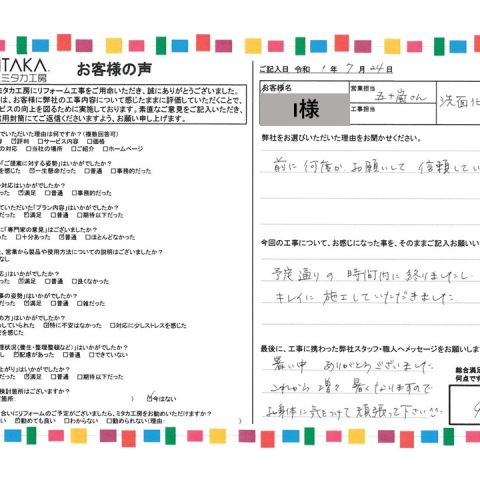 ITAKA
ミタカ工房
お客様の声
ミタカ工房にリフォーム工事をご用命いただき、誠にありがとうございました。
は、お客様に弊社の工事内容について感じたままに評価していただくことで、
ビスの向上を図るために実施しております。素直なご意見をご記入いただき、
信用封筒にてご返信くださいますよう、お願い申し上げます。
でいただいた理由は何ですか？（複数回答可）
☑評判 □サービス内容 □価格
の対応 □当社の場所 □ご紹介 □ホームページ
「ご提案に対する姿勢」はいかがでしたか？
を感じた □一生懸命だった □普通 □事務的だった
対応はいかがでしたか？
だった ☑満足 □普通 □事務的だった
ていただいた「プラン内容」はいかがでしたか？
だった ☑満足 □普通 □期待以下だった
に「専門家の意見」はございましたか？
った □十分あった ☑普通 □ほとんどなかった
、営業から製品や使用方法についての説明はございましたか？
なし
応」はいかがでしたか？
だった ☑満足 □普通 □良くなかった
事の姿勢」はいかがでしたか？
だった ☑満足 □普通 □雑だった
め方」はいかがでしたか？
していられた ☑特に不安はなかった □対応に少しストレスを感じた
を感じた
理状況（養生・整理整頓など）はいかがでしたか？
し ☑配慮があった □普通 □できていない
上がり」はいかがでしたか？
だった ☑満足 □普通 □期待以下だった
検討箇所はございますか？
） ☑今はない
合いにリフォームのご予定がございましたら、ミタカ工房をお勧めいただけますか？
い ☑勧めても良い □わからない □勧められない（理由： ）
ご記入日 令和 1 年 7 月 24 日
お客様名
I様
営業担当
五十嵐さん
工事担当
洗面化
弊社をお選びいただいた理由をお聞かせください。
前に何度かお願いして 信頼してい
今回の工事について、お感じになった事を、そのままご記入お願い
予定通りの時間内に終りましたし
キレイに施工していただきました
最後に、工事に携わった弊社スタッフ・職人へメッセージをお願いしま
暑い中 ありがとうございました
これから増々暑くなりますので
お身体に気をつけて頑張って下さい^^
総合満足
何点です